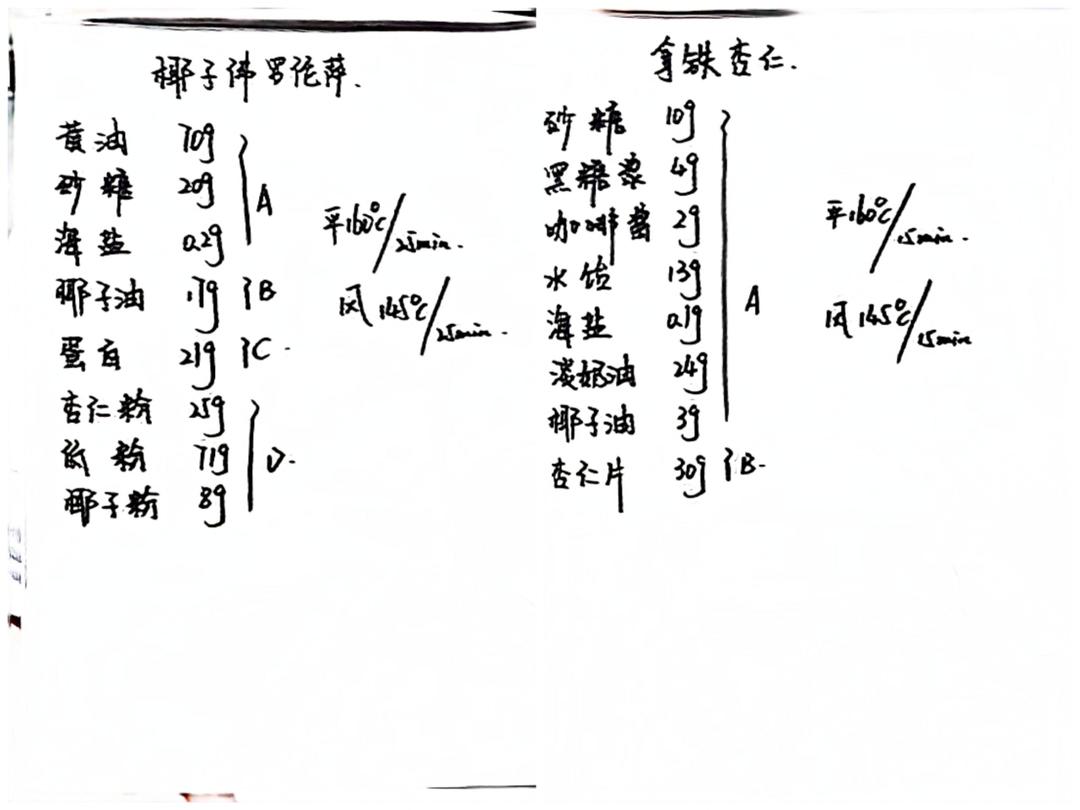 椰子佛罗伦萍.
黄油 70g
砂糖 20g
海盐 0.2g
A
椰子油 17g }B
蛋白 21g }C.
杏仁粉 25g
低粉 71g
椰子粉 8g
D.
平160℃/25min.
风145℃/25min.
拿铁杏仁.
砂糖 10g
黑糖浆 4g
咖啡酱 2g
水饴 13g
海盐 0.1g
淡奶油 24g
椰子油 3g
A
杏仁片 30g }B.
平160℃/15min.
风145℃/15min